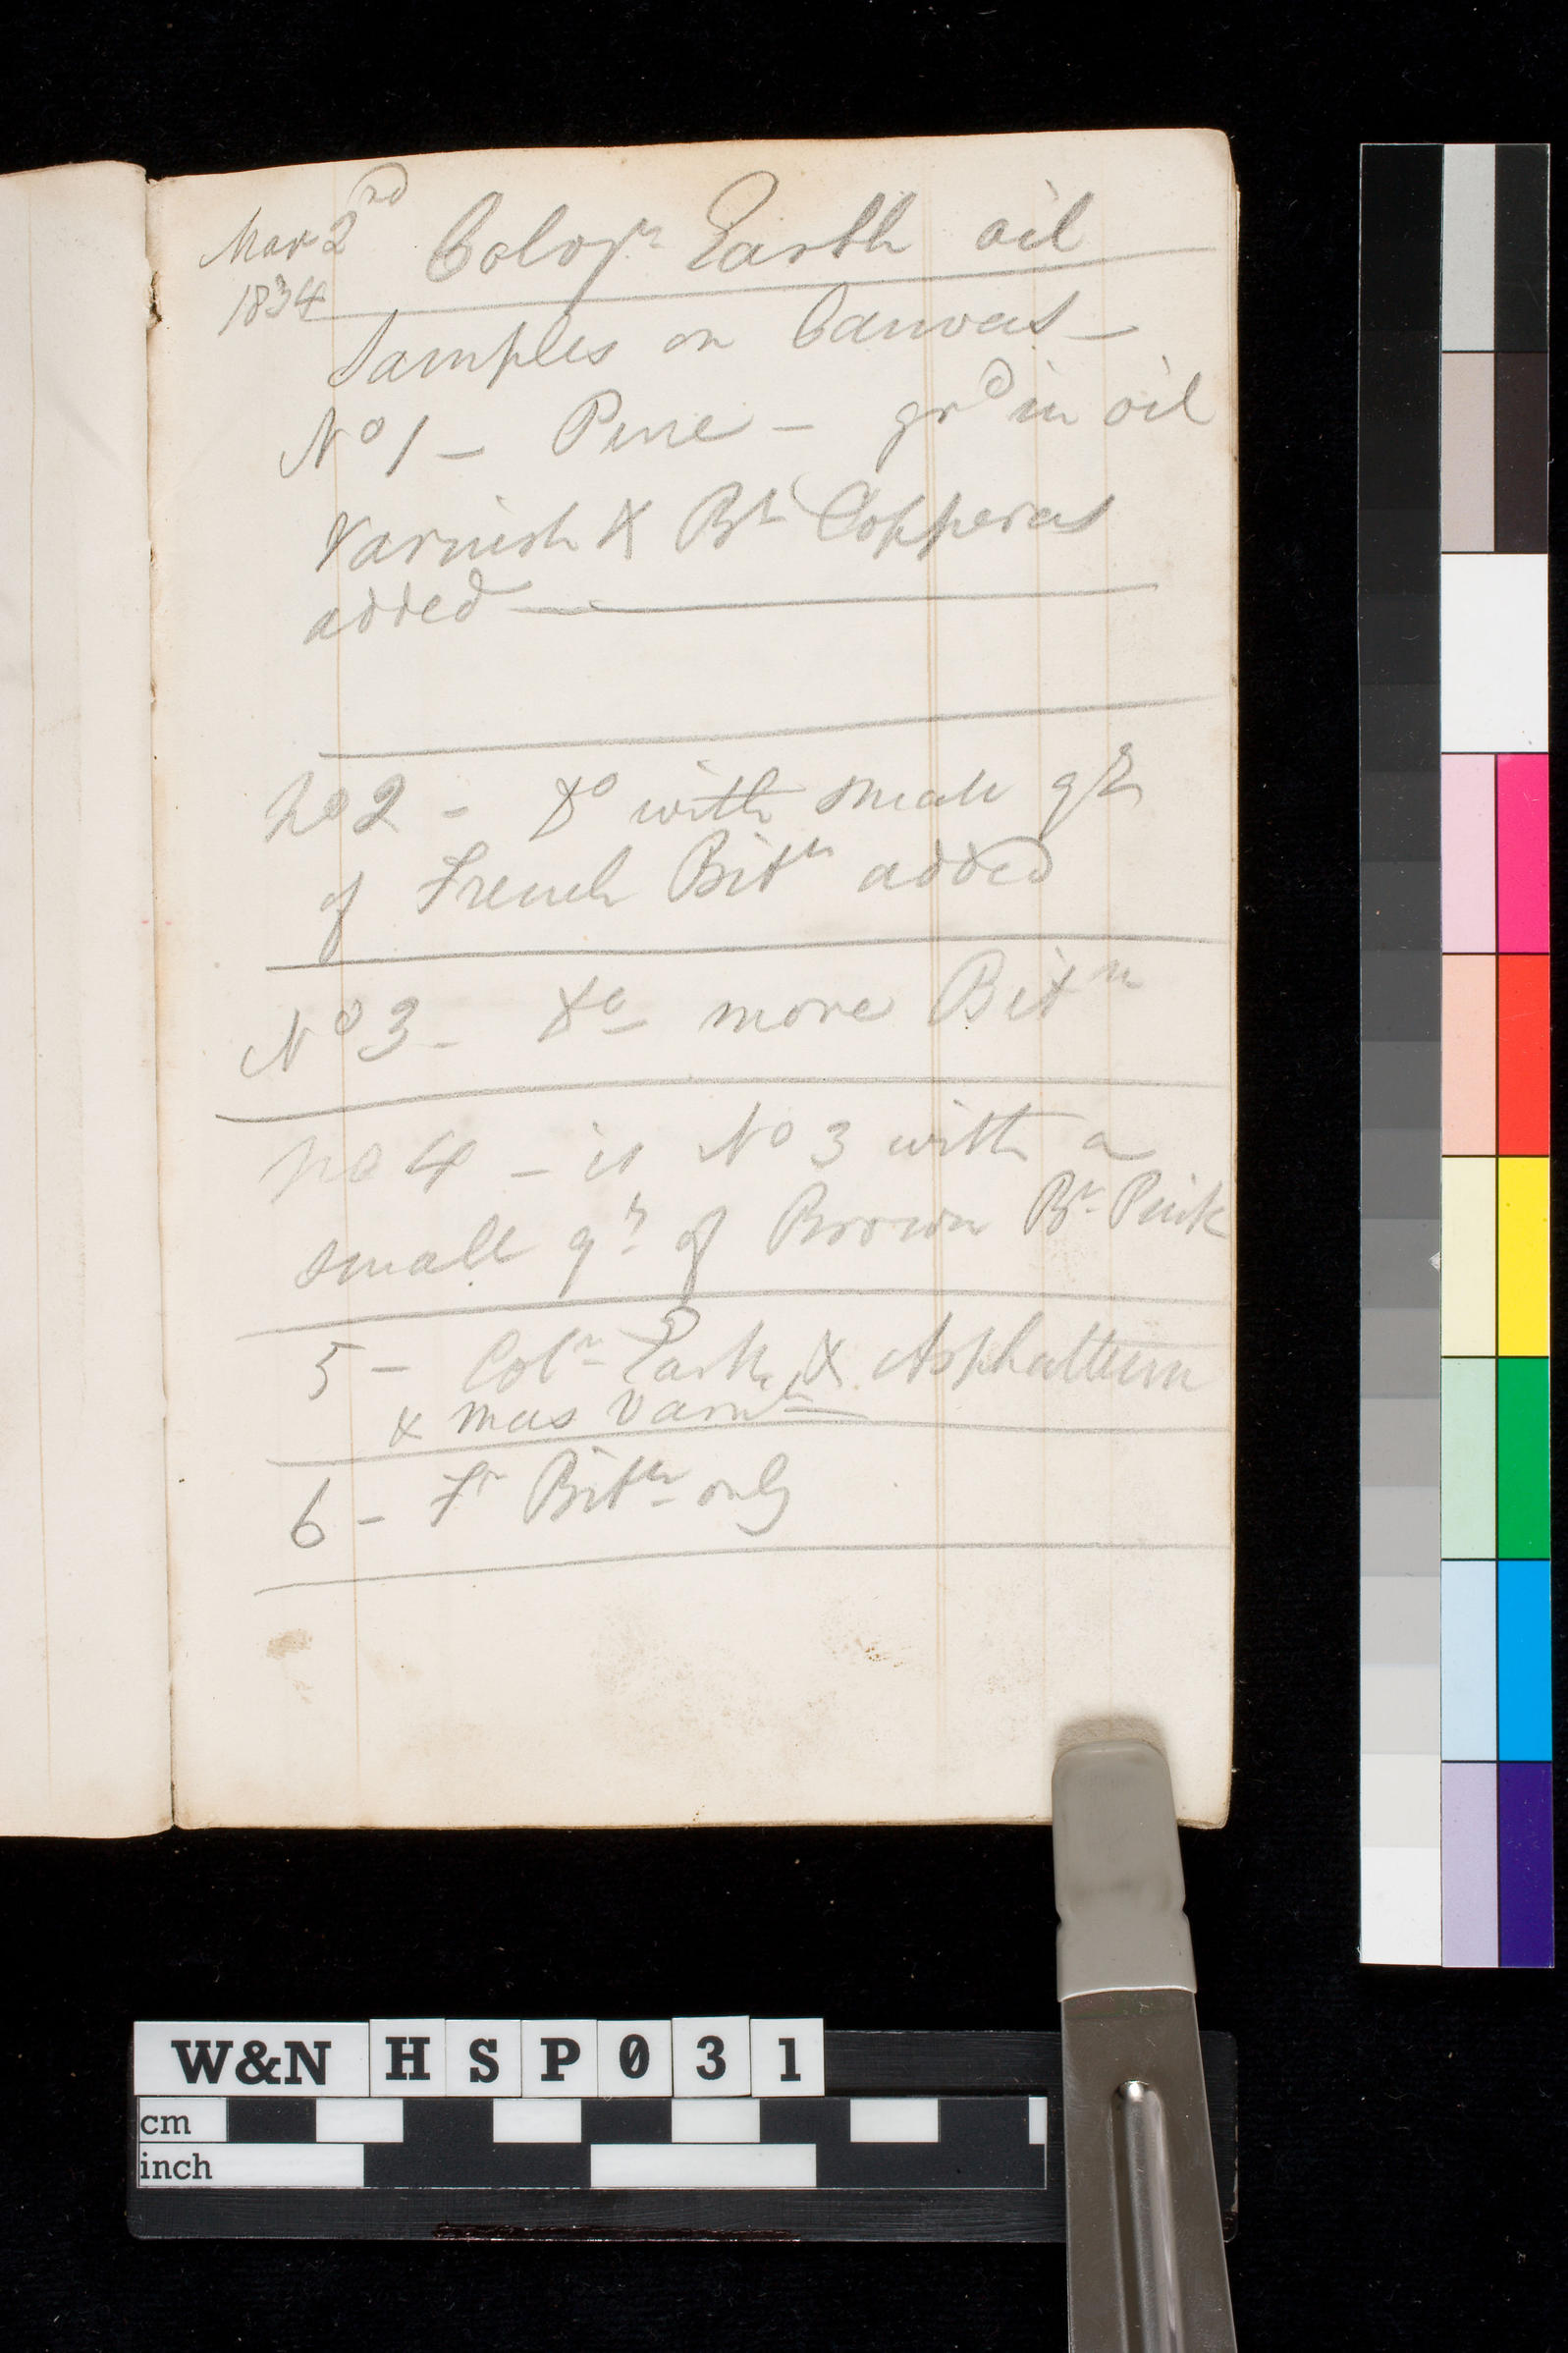 Mar 2nd Cologn Earth oil
1834
Samples on Canvas –
No 1 – Pure – grd in oil
Varnish & Bt Copperas
added
No 2 – Do with small qty
of French Bitn added
No 3 – Do more Bitn
No 4 – is No 3 with a
small qy of Brown Br Pink
5 – Coln Earth & Asphaltum
& mas Varnh
6 – Fr Bitn only
W&N HSP031
cm
inch